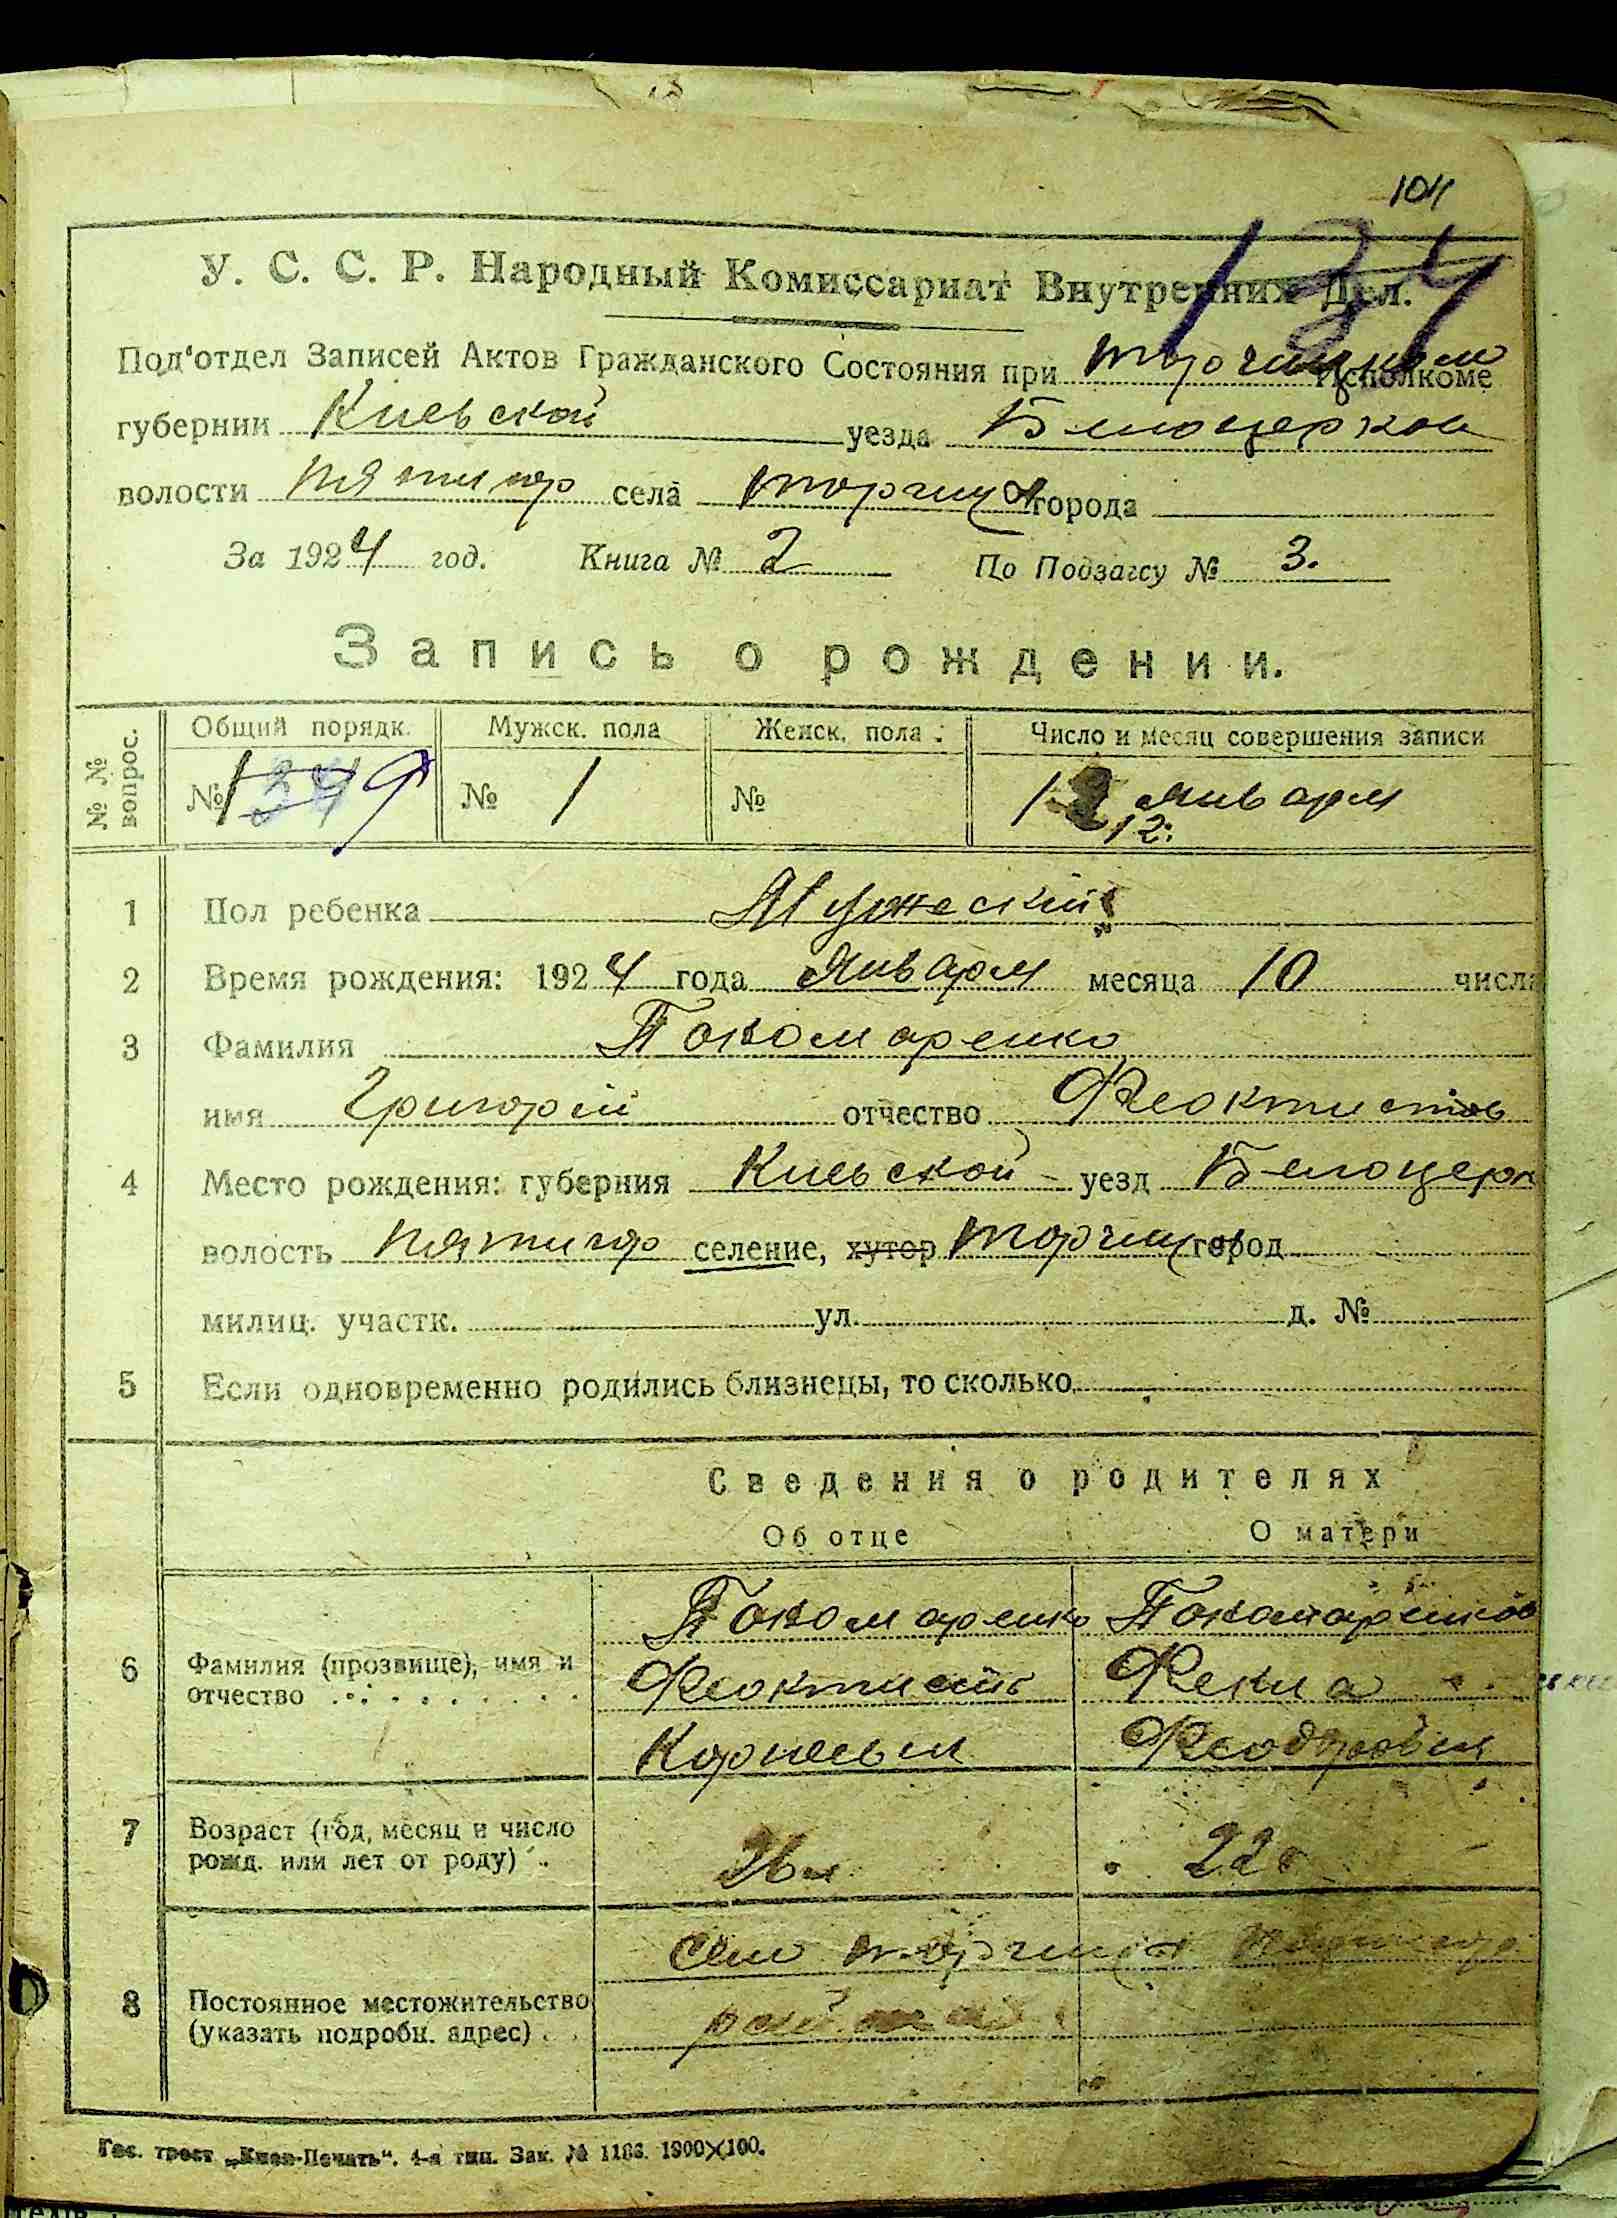 104
134
У. С. С. Р. Народный Комиссариат Внутренних Дел.
Под'отдел Записей Актов Гражданского Состояния при Исполкоме
губернии Киевской уезда Белоцерков
волости Пятигор села Торчиця города
За 1924 год. Книга № 2 По Подзагсу № 3.
Запись о рождении.
№ № вопрос. Общий порядк. Мужск. пола Женск. пола Число и месяц совершения записи
№ № 1 № 12 января
12:
1 Пол ребенка Мужеский
2 Время рождения: 1924 года января месяца 10 числа
3 Фамилия Пономаренко
имя Григорій отчество Феоктистов
4 Место рождения: губерния Киевской уезд Белоцерк
волость Пятигор селение, хутор Торчиця город
милиц. участк. ул. д. №
5 Если одновременно родились близнецы, то сколько
Сведения о родителях
Об отце О матери
6 Фамилия (прозвище), имя и отчество Пономаренко Пономаренкова
Феоктист Фекла
Корнеев
7 Возраст (год, месяц и число рожд. или лет от роду) 26 22
8 Постоянное местожительство (указать подробн. адрес) Село Торчиця
Гос. трест „Киев-Печать". 4-я тип. Зак. № 1186. 1900×100.